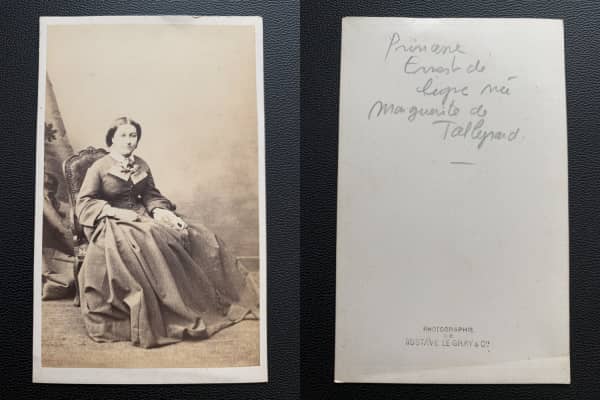 Princesse
Ernest de
Ligne née
Marguerite de
Talleyrand.
PHOTOGRAPHIE
DE
GUSTAVE LE GRAY & Cie